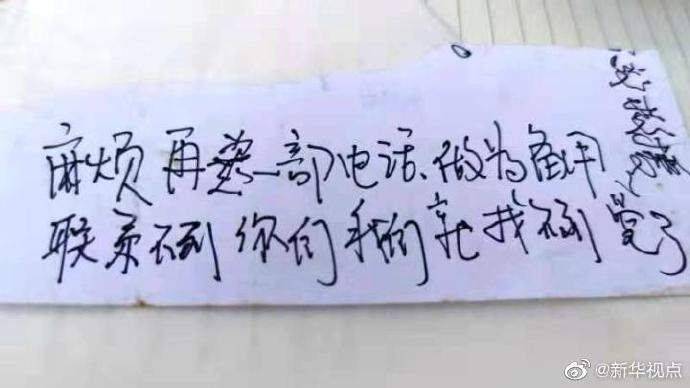 麻烦再一部电话、做为备用
联系不到你们我们就找不到党了
@新华视点